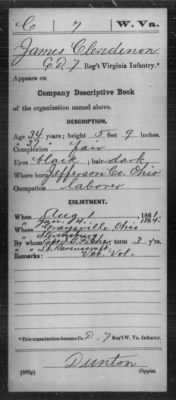 C 7 W. Va.
James Clendenon
Co. D, 7 Reg't Virginia Infantry.*
Appears on
Company Descriptive Book
of the organization named above.
DESCRIPTION.
Age 34 years; height 5 feet 9 inches.
37
Complexion fair
Eyes black; hair dark
Where born Jefferson Co. Ohio
Occupation laborer
ENLISTMENT.
When Aug. 1, 1861
Jan. 1864.
Where Graysville, Ohio
By whom term 3 y'rs.
Remarks: Vet. Vol.
*This organization became Co. D, 7 Reg't W. Va. Infantry.
Dunton
Copyist.